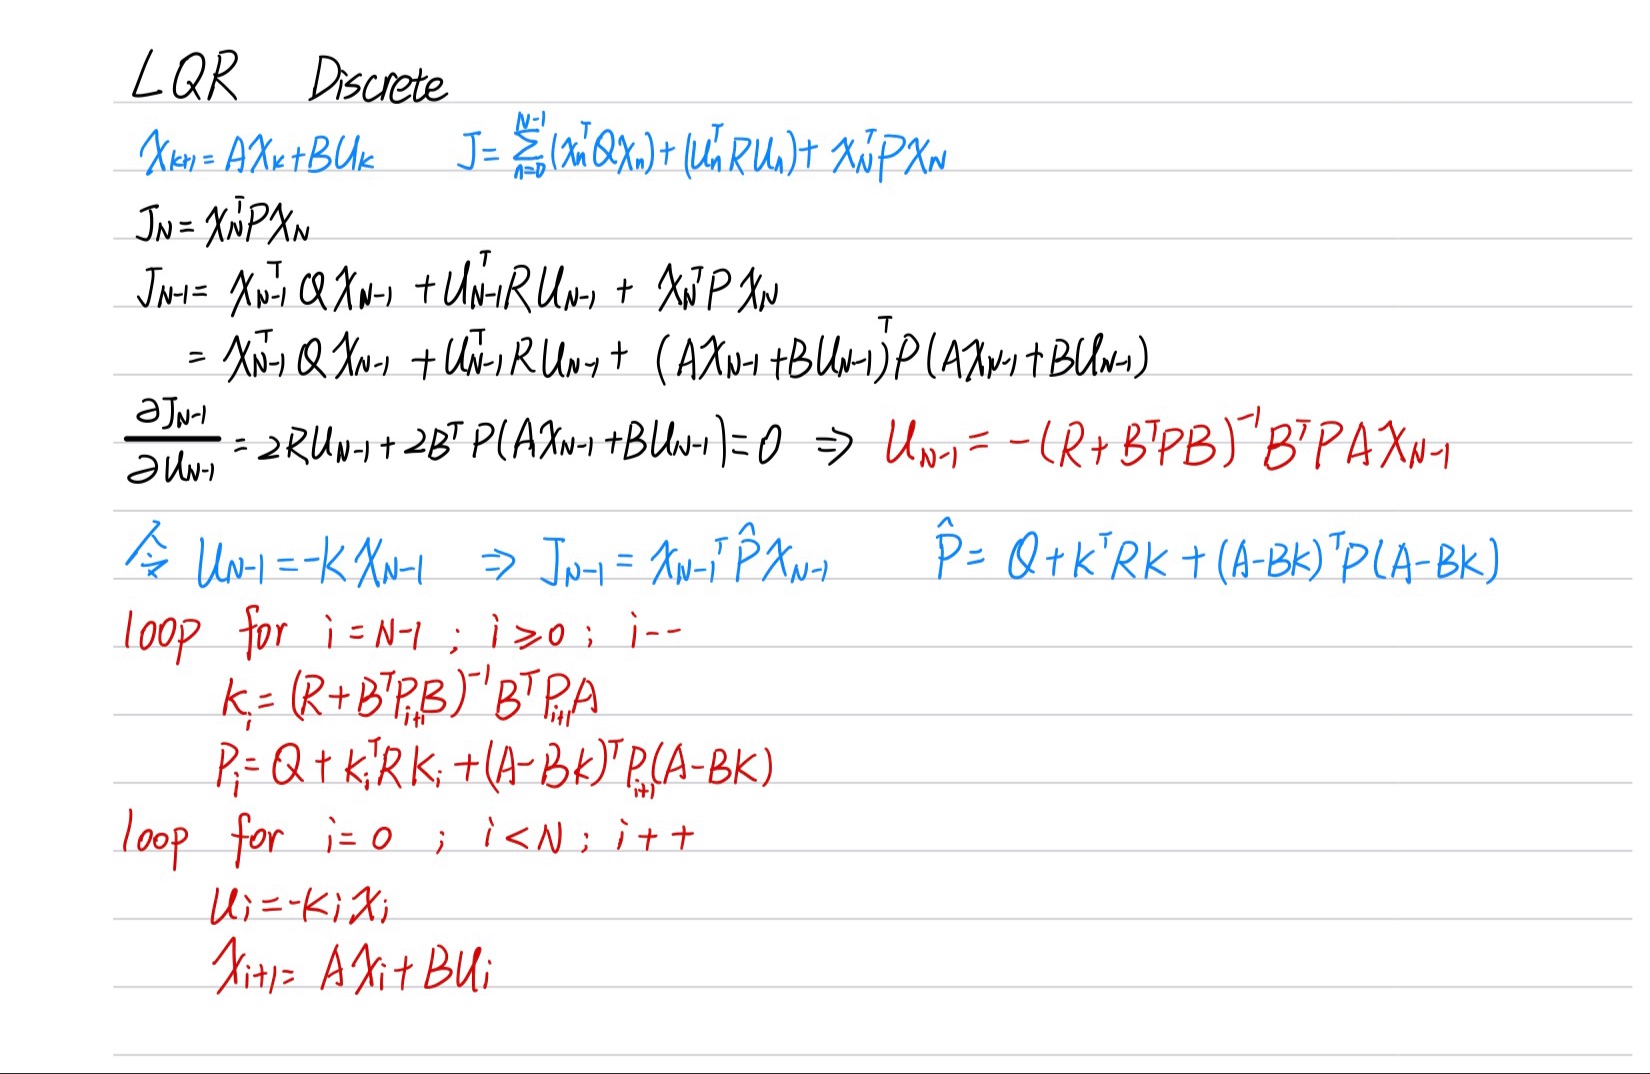 LQR Discrete
x_{k+1} = Ax_k + Bu_k J = \sum_{n=0}^{N-1} (x_n^T Q x_n) + (u_n^T R u_n) + x_N^T P x_N
J_N = x_N^T P x_N
J_{N-1} = x_{N-1}^T Q x_{N-1} + u_{N-1}^T R u_{N-1} + x_N^T P x_N
= x_{N-1}^T Q x_{N-1} + u_{N-1}^T R u_{N-1} + (Ax_{N-1} + Bu_{N-1})^T P (Ax_{N-1} + Bu_{N-1})
\frac{∂J_{N-1}}{∂u_{N-1}} = 2Ru_{N-1} + 2B^T P(Ax_{N-1} + Bu_{N-1}) = 0 ⇒ u_{N-1} = -(R + B^T P B)^{-1} B^T P A x_{N-1}
令 u_{N-1} = -K x_{N-1} ⇒ J_{N-1} = x_{N-1}^T \hat{P} x_{N-1} \hat{P} = Q + K^T R K + (A-BK)^T P (A-BK)
loop for i = N-1 ; i ≥ 0 ; i--
K_i = (R + B^T P_{i+1} B)^{-1} B^T P_{i+1} A
P_i = Q + K_i^T R K_i + (A-BK)^T P_{i+1} (A-BK)
loop for i = 0 ; i < N ; i++
u_i = -K_i x_i
x_{i+1} = Ax_i + Bu_i